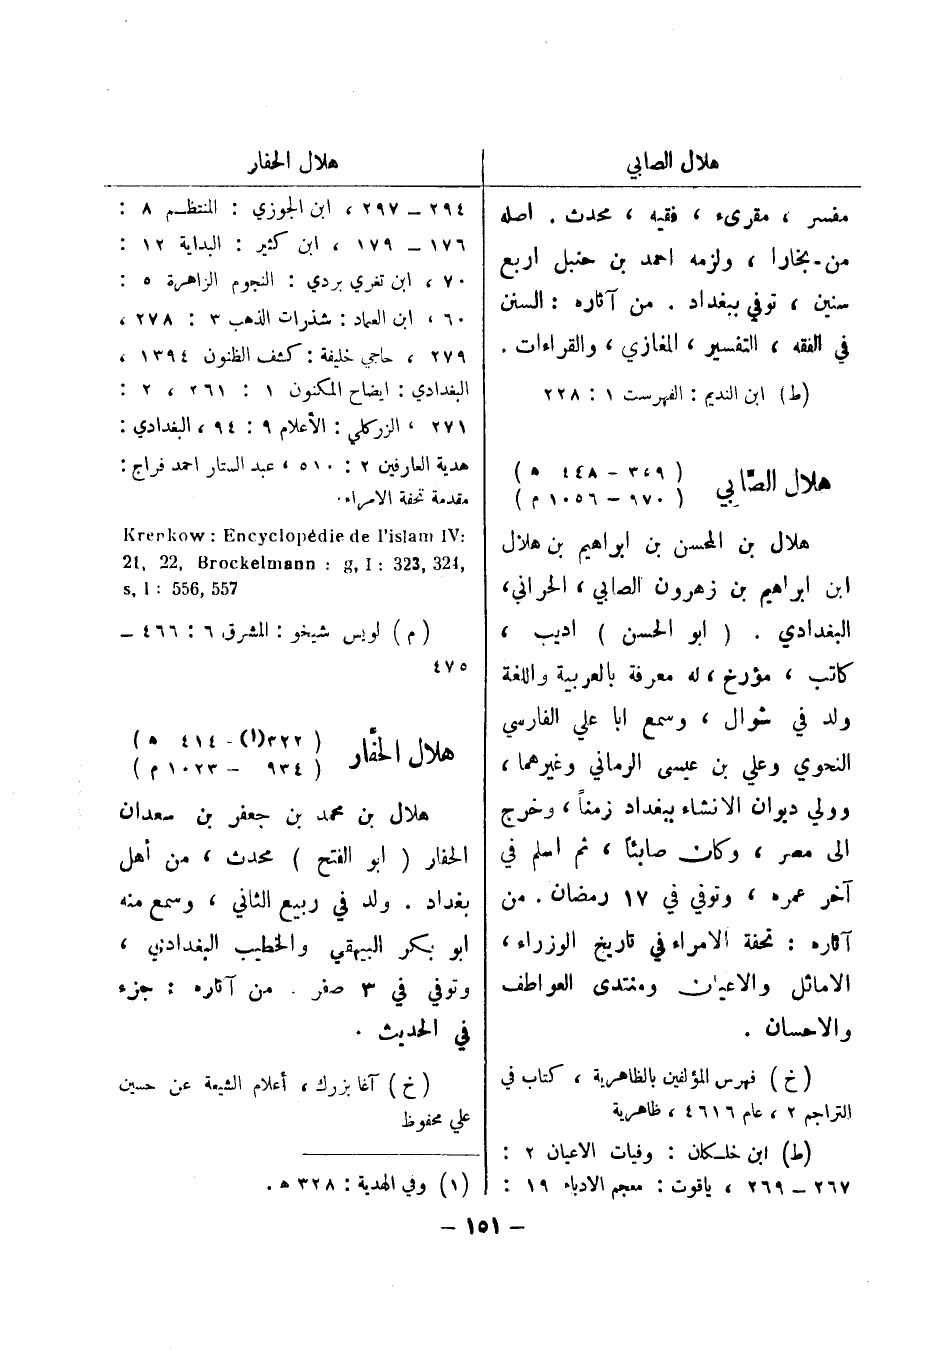 هلال الصابي
مفسر ، مقرىء ، فقيه ، محدث . اصله
من بخارا ، ولزمه احمد بن حنبل اربع
سنين ، توفي ببغداد . من آثاره : السنن
في الفقه ، التفسير ، المغازي ، والقراءات .
(ط) ابن النديم : الفهرست ١ : ٢٢٨
هلال الصّابي
( ٣٤٩ – ٤٤٨ ه )
( ٩٧٠ – ١٠٥٦ م )
هلال بن المحسن بن ابراهيم بن هلال
ابن ابراهيم بن زهرون الصابي ، الحراني ،
البغدادي . ( ابو الحسن ) اديب ،
كاتب ، مؤرخ ، له معرفة بالعربية واللغة
ولد في شوال ، وسمع ابا علي الفارسي
النحوي وعلي بن عيسى الرماني وغيرهما ،
وولي ديوان الانشاء ببغداد زمناً ، وخرج
الى مصر ، وكان صابئاً ، ثم اسلم في
آخر عمره ، وتوفي في ١٧ رمضان . من
آثاره : تحفة الامراء في تاريخ الوزراء ،
الاماثل والاعيان ومنتدى العواطف
والاحسان .
(خ) فهرس المؤلفين بالظاهرية ، كتاب في
التراجم ٢ ، عام ٤٦١٦ ، ظاهرية
(ط) ابن خلكان : وفيات الاعيان ٢ :
٢٦٧ – ٢٦٩ ، ياقوت : معجم الادباء ١٩ :
هلال الحفار
٢٩٤ – ٢٩٧ ، ابن الجوزي : المنتظم ٨ :
١٧٦ – ١٧٩ ، ابن كثير : البداية ١٢ :
٧٠ ، ابن تغري بردي : النجوم الزاهرة ٥ :
٦٠ ، ابن العماد : شذرات الذهب ٣ : ٢٧٨ ،
٢٧٩ ، حاجي خليفة : كشف الظنون ١٣٩٤ ،
البغدادي : ايضاح المكنون ١ : ٢٦١ ، ٢ :
٢٧١ ، الزركلي : الأعلام ٩ : ٩٤ ، البغدادي :
هدية العارفين ٢ : ٥١٠ ، عبد الستار احمد فراج :
مقدمة تحفة الامراء .
Krenkow : Encyclopédie de l'islam IV:
21, 22, Brockelmann : g, I : 323, 324,
s, I : 556, 557
( م ) لويس شيخو : المشرق ٦ : ٤٦٦ –
٤٧٥
هلال الحفَّار
( ٣٢٢(١) - ٤١٤ ه )
( ٩٣٤ – ١٠٢٣ م )
هلال بن محمد بن جعفر بن سعدان
الحفار ( ابو الفتح ) محدث ، من أهل
بغداد . ولد في ربيع الثاني ، وسمع منه
ابو بكر البيهقي والخطيب البغدادي ،
وتوفي في ٣ صفر . من آثاره : جزء
في الحديث .
(خ) آغا بزرك ، أعلام الشيعة عن حسين
علي محفوظ
(١) وفي الهدية : ٣٢٨ ه .
– ١٥١ –